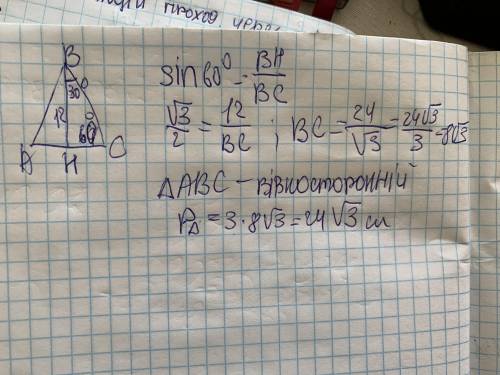 B
30°
12
60°
A H C
sin60° = BH/BC
√3/2 = 12/BC ; BC = 24/√3 = 24√3/3 = 8√3
△ABC – рівносторонній
P△ = 3·8√3 = 24√3 см